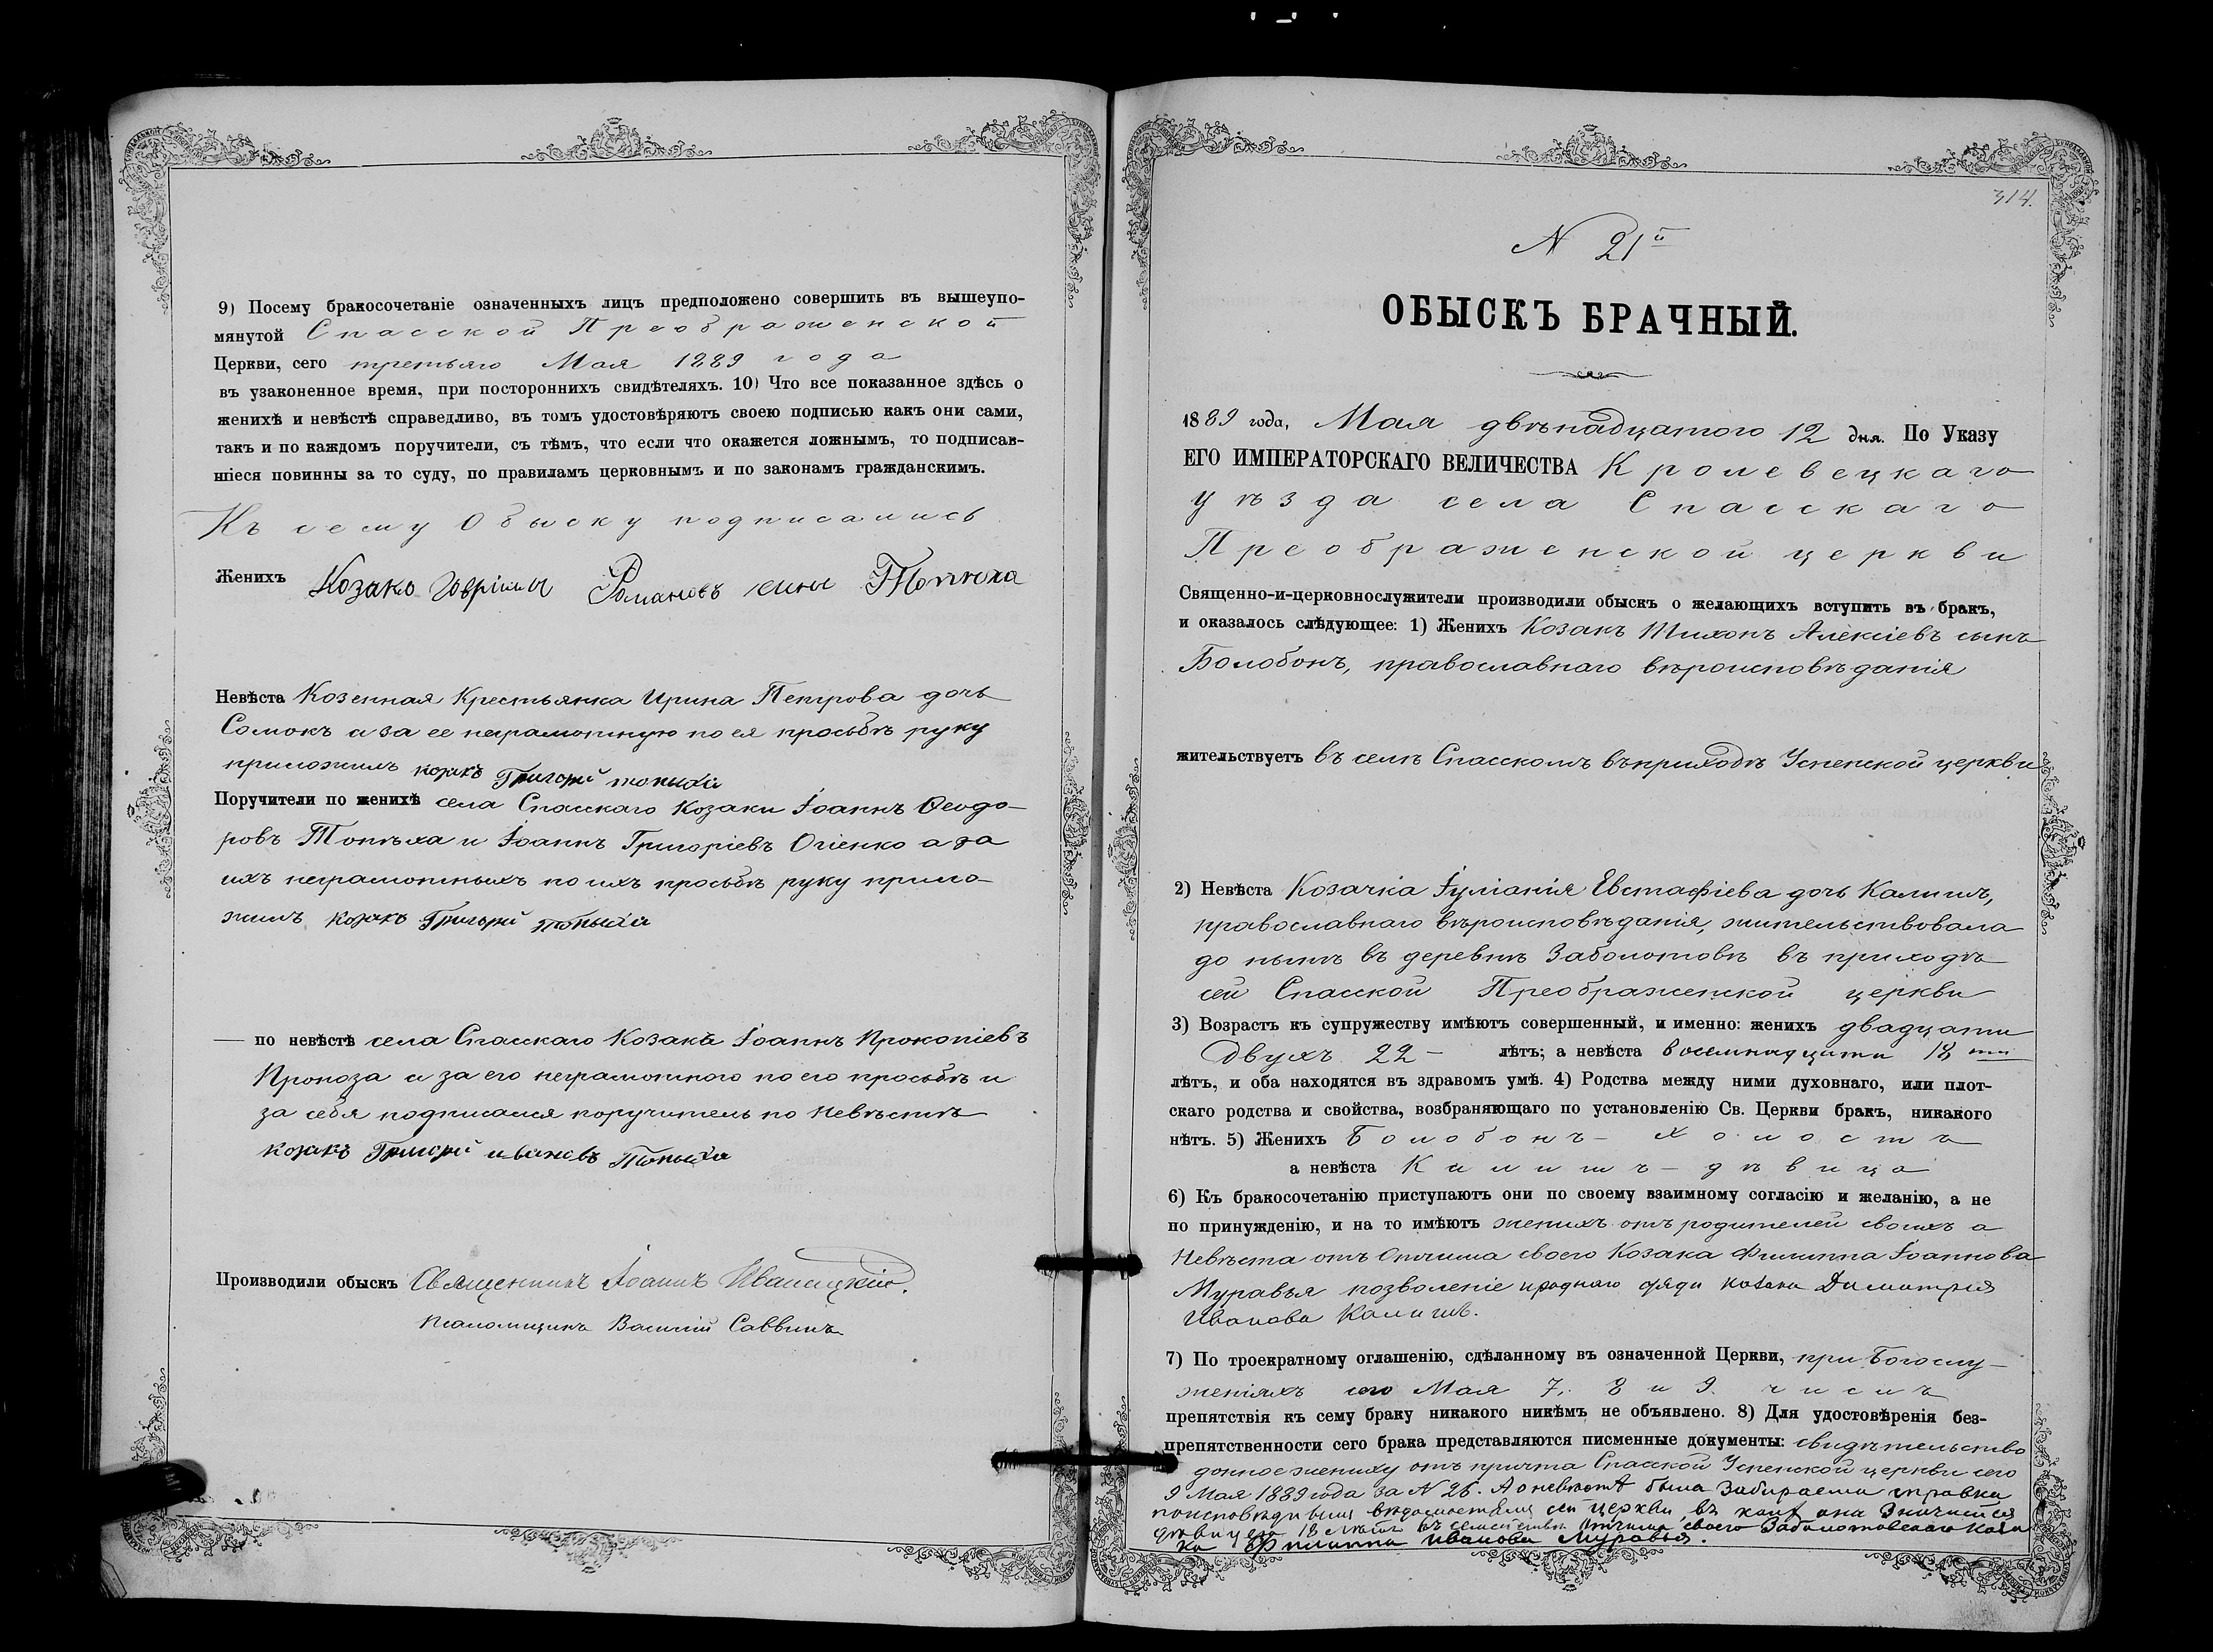 9) Посему бракосочетаніе означенныхъ лицъ предположено совершить въ вышеупо-
мянутой Спасской Преображенской
Церкви, сего третьяго Мая 1889 года
въ узаконенное время, при постороннихъ свидѣтеляхъ. 10) Что все показанное здѣсь о
женихѣ и невѣстѣ справедливо, въ томъ удостовѣряютъ своею подписью какъ они сами,
такъ и по каждомъ поручители, съ тѣмъ, что если что окажется ложнымъ, то подписав-
шіеся повинны за то суду, по правиламъ церковнымъ и по законамъ гражданскимъ.
Къ сему Обыску подписались
Женихъ Козакъ Гавріилъ Романовъ сынъ
Невѣста Козенная Крестьянка Ирина Петрова дочь
Сомокъ а за ее неграмотную по ея просьбѣ руку
приложилъ козакъ Григорій
Поручители по женихѣ села Спасскаго Козаки Іоаннъ Ѳеодо-
ровъ Топѣха и Іоаннъ Григоріевъ Огіенко а за
ихъ неграмотныхъ по ихъ просьбѣ руку прило-
жилъ козакъ Григорій
— по невѣстѣ села Спасскаго Козакъ Іоаннъ Прокопіевъ
Пропоза а за его неграмотного по его просьбѣ и
за себя подписался поручитель по Невѣстѣ
козакъ Григорій Ивановъ
Производили обыскъ Священникъ Іоаннъ
Псаломщикъ Василій Саввинъ
314.
N 21й
ОБЫСКЪ БРАЧНЫЙ.
1889 года, Мая двѣнадцатого 12 дня. По Указу
ЕГО ИМПЕРАТОРСКАГО ВЕЛИЧЕСТВА Кролевецкаго
уѣзда села Спасскаго
Преображенской церкви
Священно-и-церковнослужители производили обыскъ о желающихъ вступить въ бракъ,
и оказалось слѣдующее: 1) Женихъ Козакъ Тихонъ Алексіевъ сынъ
Болобонъ, православнаго вѣроисповѣданія
жительствуетъ въ селѣ Спасскомъ въ приходѣ Успенской церкви
2) Невѣста Козачка Іуліанія Евстафіева дочь Калишъ,
православнаго вѣроисповѣданія, жительствовала
до нынѣ въ деревнѣ Заболотовѣ въ приходѣ
сей Спасской Преображенской церкви
3) Возрастъ къ супружеству имѣютъ совершенный, и именно: женихъ двадцати
двухъ 22 – лѣтъ; а невѣста восемнадцати 18 ти
лѣтъ, и оба находятся въ здравомъ умѣ. 4) Родства между ними духовнаго, или плот-
скаго родства и свойства, возбраняющаго по установленію Св. Церкви бракъ, никакого
нѣтъ. 5) Женихъ Болобонъ – холостъ
а невѣста Калишъ – дѣвица
6) Къ бракосочетанію приступаютъ они по своему взаимному согласію и желанію, а не
по принужденію, и на то имѣютъ женихъ отъ родителей своихъ а
Невѣста отъ Отчима своего Козака Филиппа Іоаннова
Муравья позволеніе и роднаго дяди козака Димитрія
Иванова Калишъ.
7) По троекратному оглашенію, сдѣланному въ означенной Церкви, при Богослу-
женіяхъ сего Мая 7, 8 и 9. числъ
препятствія къ сему браку никакого никѣмъ не объявлено. 8) Для удостовѣренія без-
препятственности сего брака представляются писменные документы: свидѣтельство
данное жениху отъ причта Спасской Успенской церкви сего
9 Мая 1889 года за N 26. А о невѣстѣ была забираема справка
по исповѣднымъ вѣдомостямъ сей церкви, въ коихъ она значится
дѣвицею 18 лѣтъ въ семействѣ отчима своего Заболотовскаго Коза
ка Филиппа Иванова Муравья.